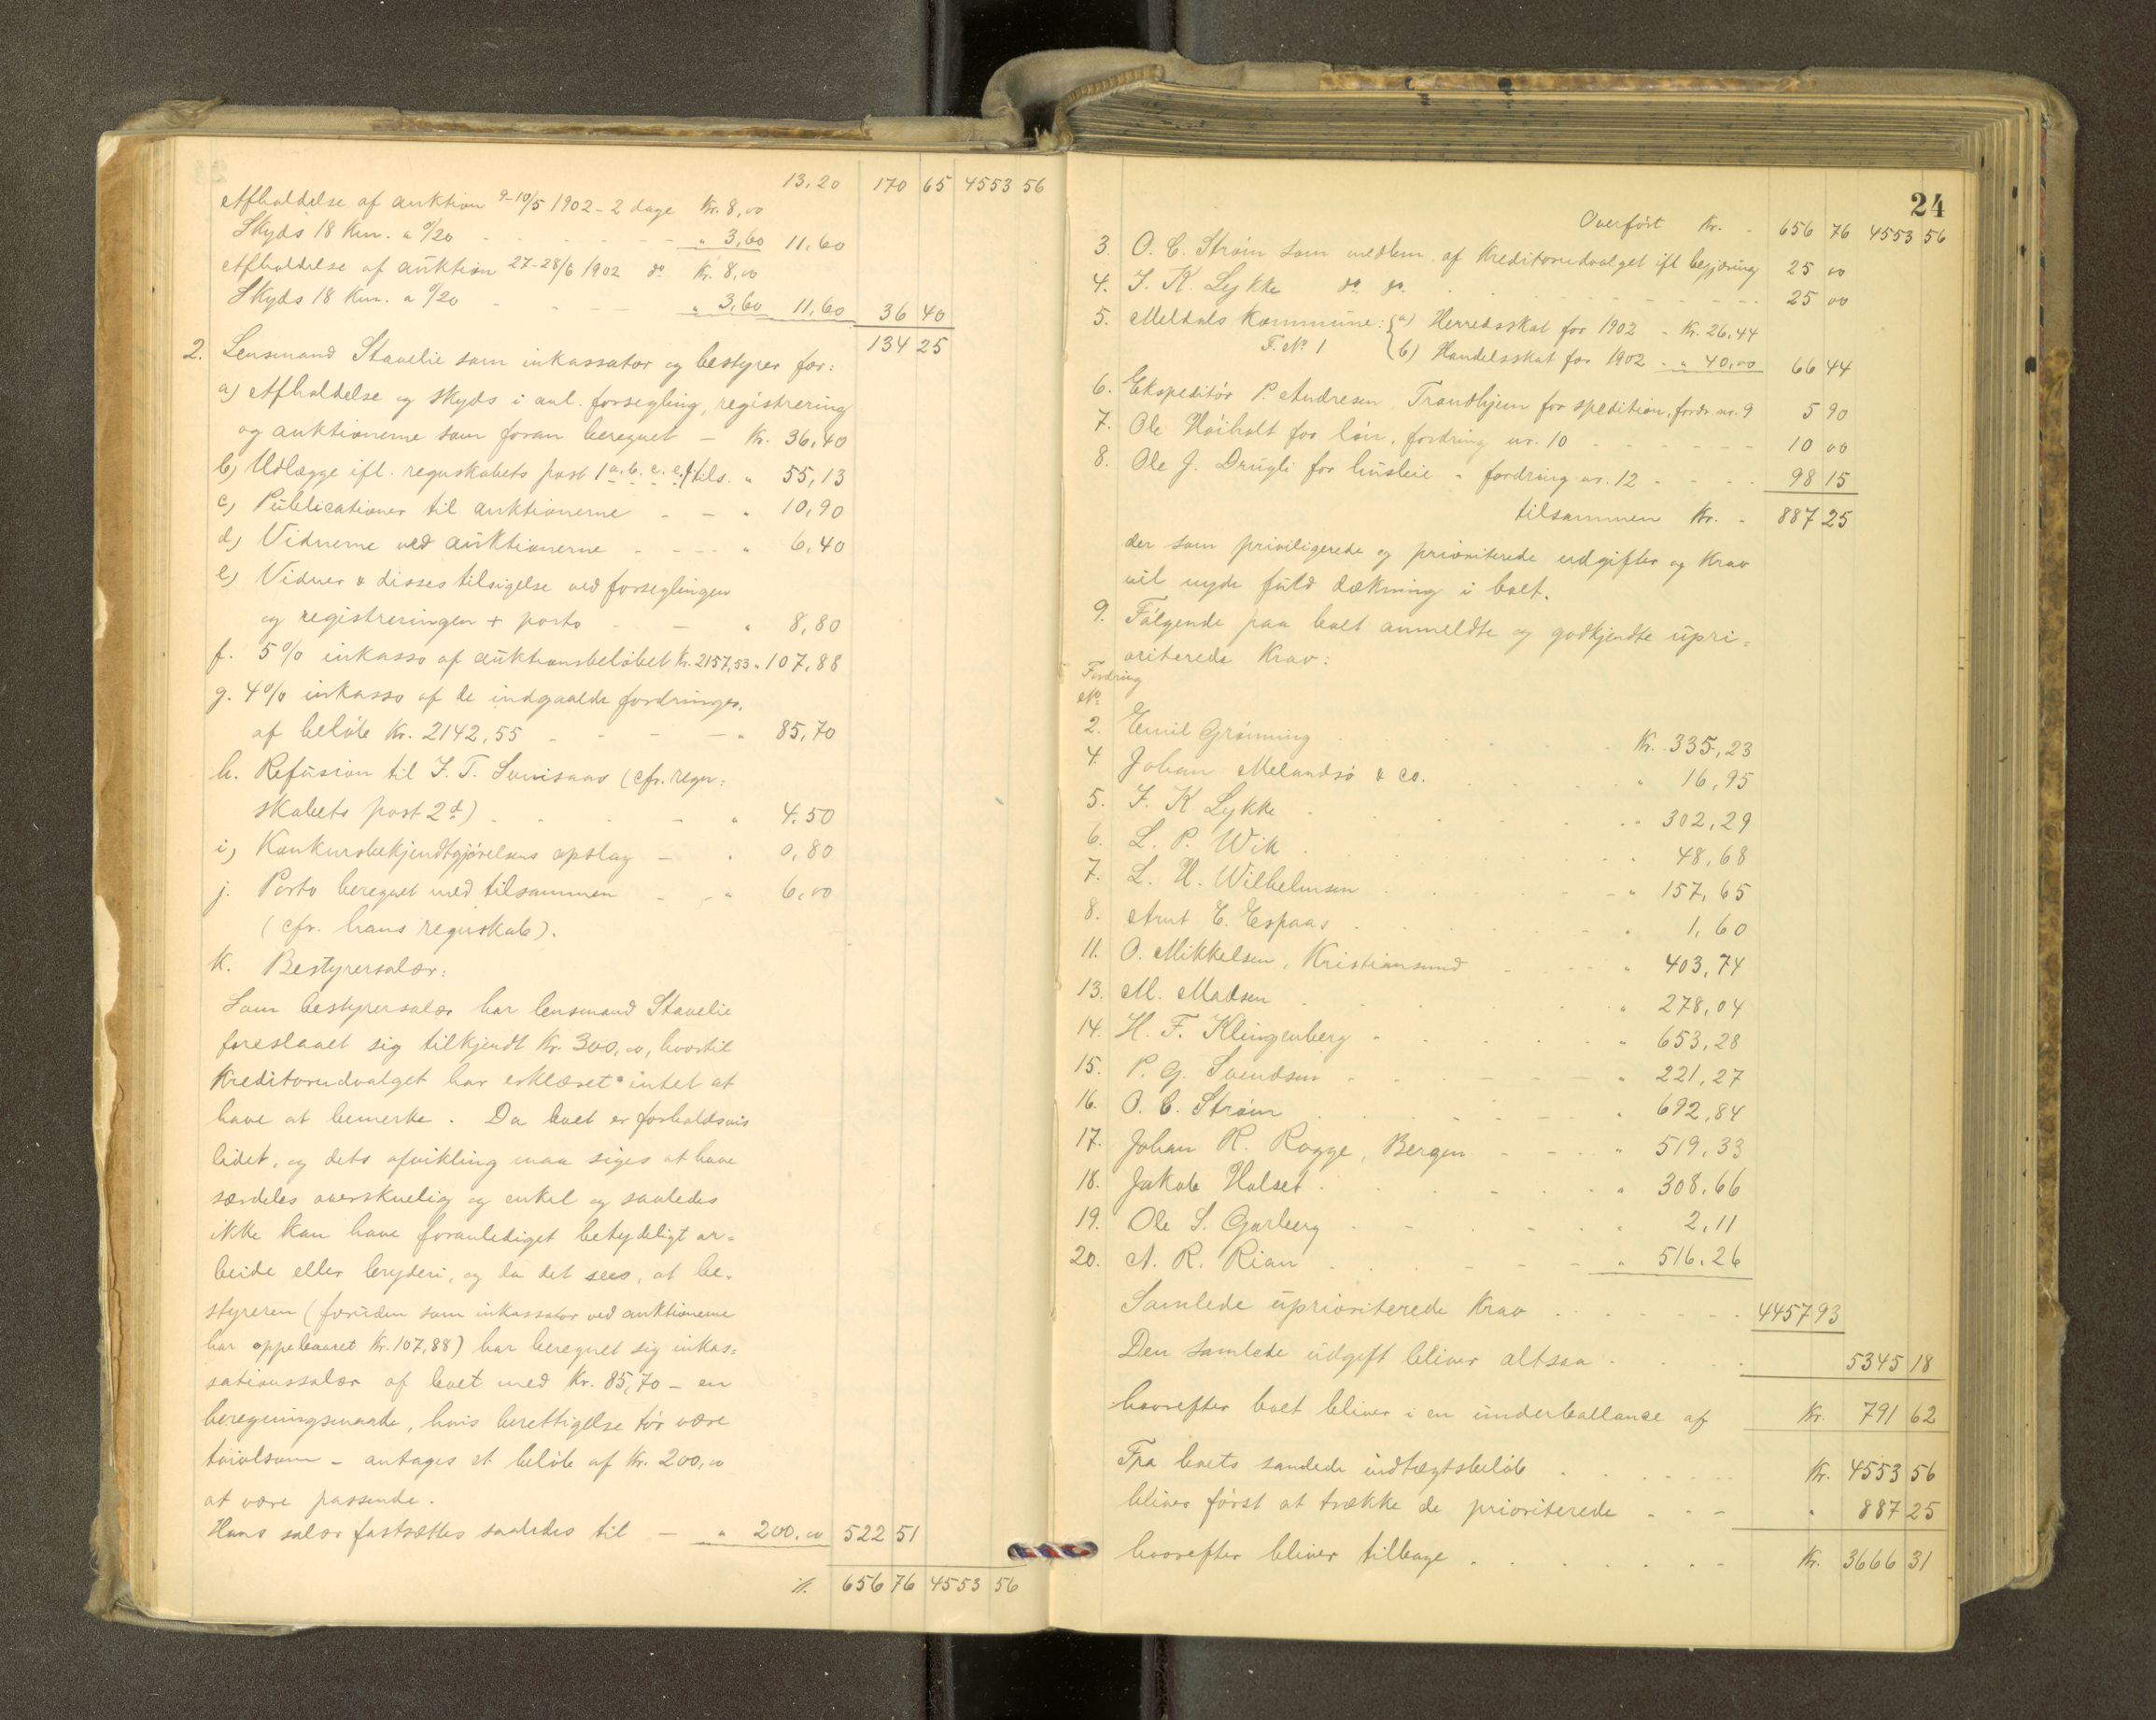 13,20 170 65 4553 56
Afholdelse af auktion 9-10/5 1902 - 2 dage Kr. 8,00
Skyds 18 Km. a 0/20 - - - - - - „ 3,60 11,60
Afholdelse af auktion 27-28/6 1902 do Kr. 8,00
Skyds 18 Km. a 0/20 - - - - „ 3,60 11,60 36 40
134 25
2. Lensmand Stavelie som inkassator og bestyrer for:
a) Afholdelse og skyds i anl. forsegling, registrering
og auktionerne som foran beregnet - Kr. 36,40
b) Udlægge ifl. regnskabets post 1 a. b. c. e. f tils. „ 55,13
c) Publicationer til auktionerne - - „ 10,90
d) Vidnerne ved auktionerne - - - - „ 6,40
e) Vidner & disses tilsigelse ved forseglingen
og registreringen + porto - - „ 8,80
f. 5% inkasso af auktionsbeløbet Kr. 2157,53 „ 107,88
g. 4% inkasso af de indgaaede fordringer,
af beløb Kr. 2142,55 - - - - „ 85,70
h. Refusion til J. T. (cfr. regn=
skabets post 2 d) - - - - „ 4.50
i) Konkursbekjendtgjørelsens opslag - „ 0,80
j. Porto beregnet med tilsammen - - „ 6,00
(cfr. hans regnskab).
k. Bestyrersalær:
Som bestyrersalær har lensmand Stavelie
foreslaaet sig tilkjendt Kr. 300,00, hvortil
Kreditorudvalget har erklæret intet at
have at bemerke. Da boet er forholdsvis
lidet, og dets afvikling maa siges at have
særdeles overskuelig og enkel og saaledes
ikke kan have foranlediget betydeligt ar=
beide eller bryderi, og da det sees, at be-
styreren (foruden som inkassator ved auktionerne
har oppebaaret Kr. 107,88) har beregnet sig inkas=
sationssalær af boet med Kr. 85,70 - en
beregningsmaade, hvis berettigelse tør være
tvivlsom - antages et beløb af Kr. 200,00
at være passende.
Hans salær fastsættes saaledes til - „ 200.00 522 51
656 76 4553 56
24
Overført Kr. - 656 76 4553 56
3. O. C. Strøm som medlem af Kreditorudvalget ifl begjæring 25 00
4. J. K. Lykke do do. - - - - 25 00
5. Meldals Kommune: {a) Herredsskat for 1902 - Kr. 26,44
F. No 1 {b) Handelsskat for 1902 - „ 40,00 66 44
6. Ekspeditør P. Andresen Trondhjem for spedition, fordr. nr. 9 5 90
7. Ole Høiholt for løn, fordring nr. 10 - - - - 10 00
8. Ole J. Drugli for husleie - fordring nr. 12 - - - 98 15
tilsammen Kr. - 887 25
der som priviligerede og prioriterede udgifter og Krav
vil nyde fuld dækning i boet.
9. Følgende paa boet anmeldte og godkjendte upri=
oriterede Krav:
Fordring
No.
2. Emil Grønning . . . . Kr. 335,23
4. Johan Melandsø & Co. . . . „ 16,95
5. J. K. Lykke . . . . „ 302,29
6. L. P. Wik . . . . „ 48,68
7. L. H. Wilhelmsen . . . . „ 157,65
8. Arnt E. Espaas . . . . „ 1,60
11. O. Mikkelsen, Kristiansund - - - „ 403,74
13. M. Madsen . . . . „ 278,04
14. H. F. Klingenberg . . . . „ 653,28
15. P. G. Svendsen . . . . „ 221,27
16. O. C. Strøm . . . . „ 692,84
17. Johan R. Rogge, Bergen - - - „ 519,33
18. Jakob Halset . . . . „ 308,66
19. Ole S. Garberg . . . . „ 2,11
20. A. R. Rian . . . . „ 516.26
Samlede uprioriterede Krav . . . . 4457 93
Den samlede udgift bliver altsaa . . . . 5345 18
hvorefter boet bliver i en underballance af Kr. 791 62
Fra boets samlede indtægtsbeløb . . . . Kr. 4553 56
bliver først at trække de prioriterede - - - „ 887 25
hvorefter bliver tilbage . . . . Kr. 3666 31